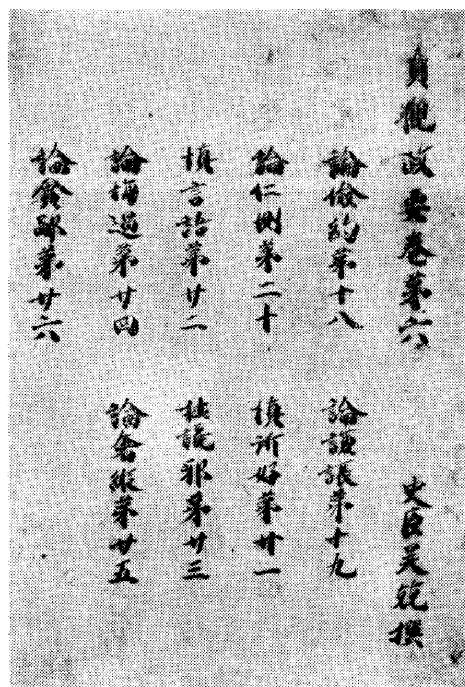 貞觀政要卷第六 史臣吴兢撰
論儉約第十八 論謙張第十九
論仁惻第二十 慎所好第廿一
慎言語第廿二 杜讒邪第廿三
論悔過第廿四 論奢縱第廿五
論貪鄙第廿六